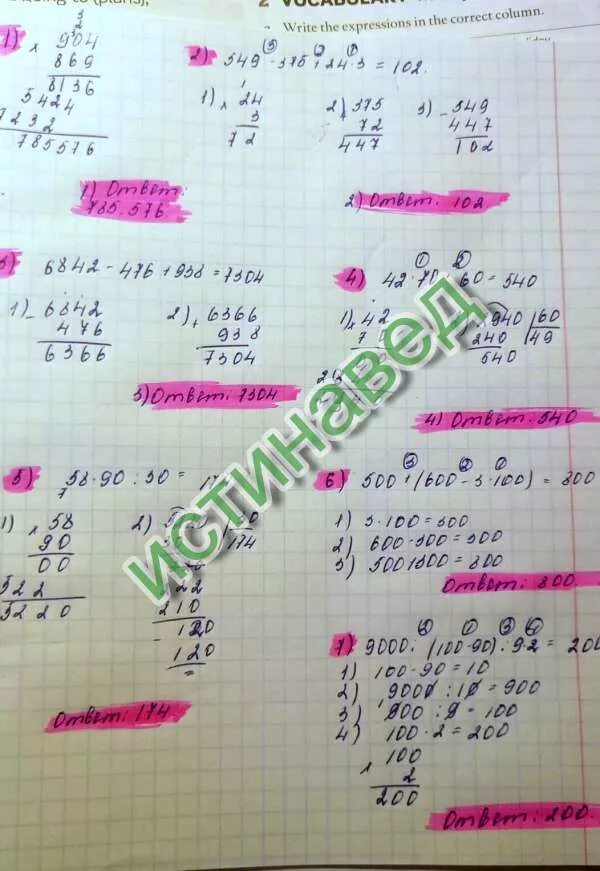 2 VOCABULARY
Write the expressions in the correct column.
1)
904
869
8136
5424
7232
785576
1) Ответ:
785.576
2) 549 - 375 + 24 · 3 = 102.
1) 24
3
72
2) 375
72
447
3) 549
447
102
2) Ответ: 102
3) 6842 - 476 + 938 = 7304
1) 6842
476
6366
2) 6366
938
7304
3) Ответ: 7304
4) 42 · 70 : 60 = 540
1) 42
940 60
240 49
540
4) Ответ: 540
5) 58 · 90 : 30 =
1) 58
90
00
522
5220
2)
174
210
120
120
Ответ: 174
6) 500 + (600 - 3 · 100) = 800
1) 3 · 100 = 300
2) 600 - 300 = 300
3) 500 + 300 = 800
Ответ: 800
7) 9000 : (100 - 90) : 9 · 2 = 200
1) 100 - 90 = 10
2) 9000 : 10 = 900
3) 900 : 9 = 100
4) 100 · 2 = 200
100
2
200
Ответ: 200.
истинавед